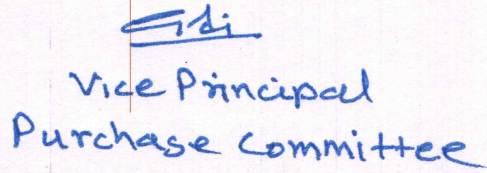 Vice Principal
Purchase Committee